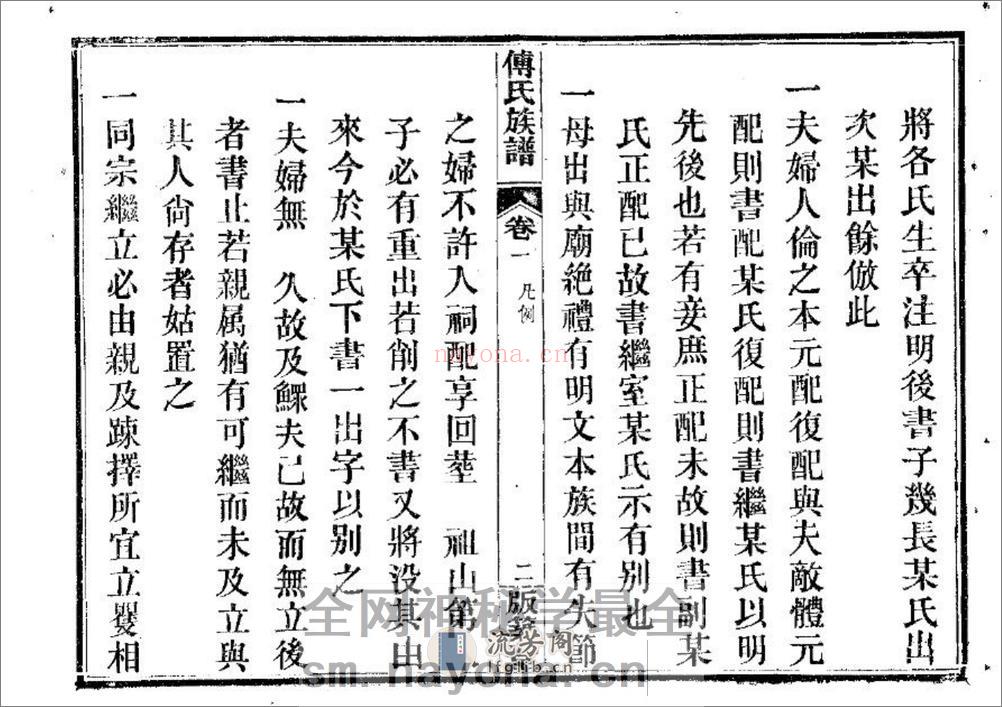 將各氏生卒注明後書子幾長某氏出
次某出餘倣此
一夫婦人倫之本元配復配與夫敵體元
配則書配某氏復配則書繼某氏以明
先後也若有妾庶正配未故則書副某
氏正配已故書繼室某氏示有別也
一母出與廟絕禮有明文本族間有失節
傅氏族譜
卷一
凡例
二
版築
之婦不許入祠配享回塟 祖山第
子必有重出若削之不書又將没其由
來今於某氏下書一出字以別之
一夫婦無 久故及鰥夫已故而無立後
者書止若親属猶有可繼而未及立與
其人尙存者姑置之
一同宗繼立必由親及踈擇所宜立嬰相
nayona.cn
全网神秘学最全
流芳阁
lfglib.cn
sm.nayona.cn